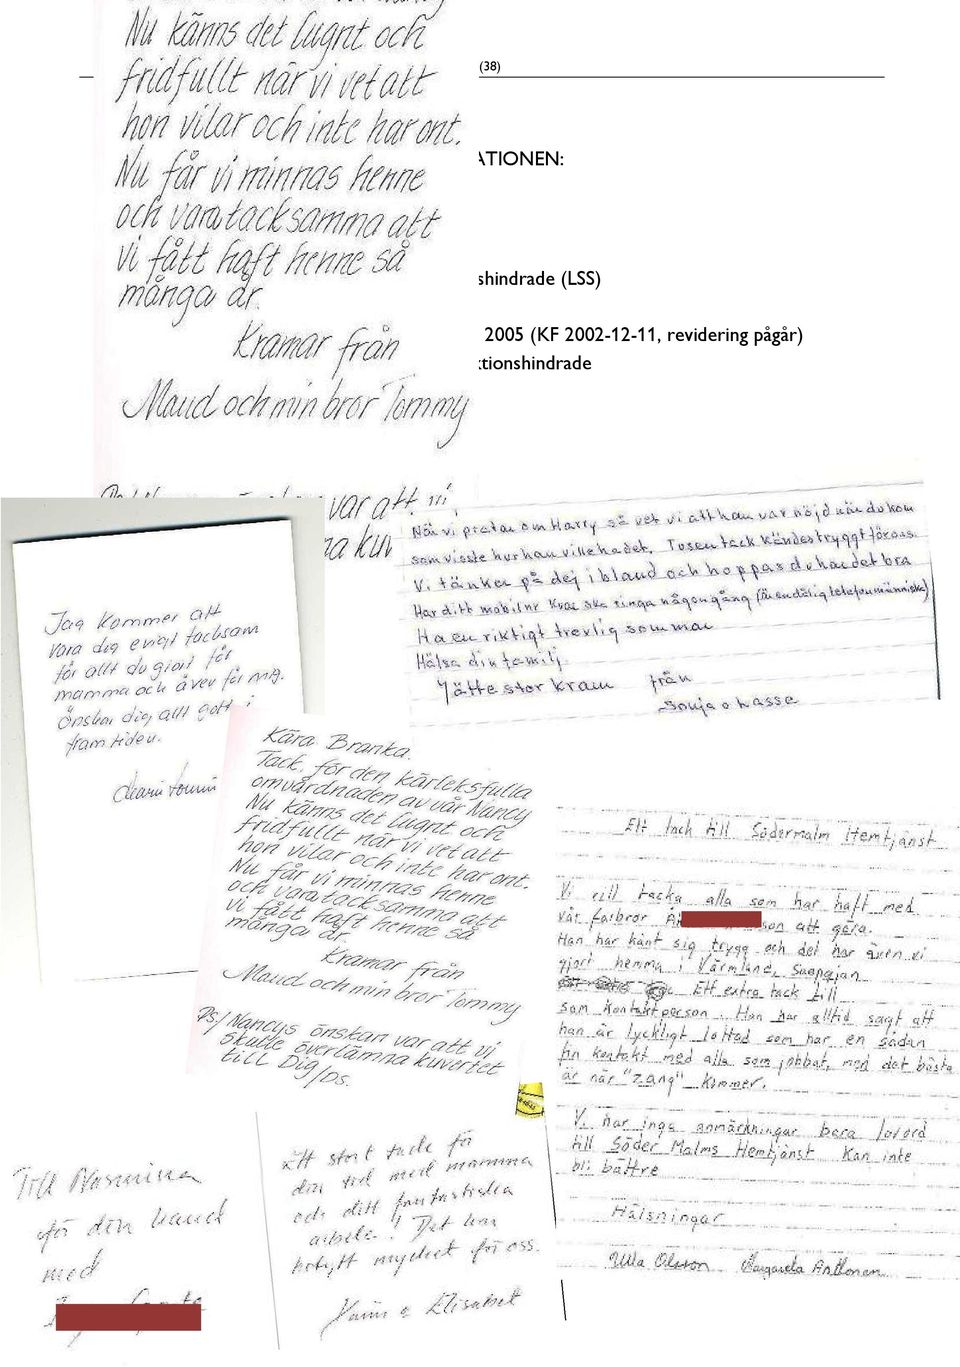 Nu känns det lugnt och
fridfullt när vi vet att
hon vilar och inte har ont.
Nu får vi minnas henne
och vara tacksamma att
vi fått haft henne så
många år.
Kramar från
Maud och min bror Tommy
var att vi
(38)
ATIONEN:
shindrade (LSS)
2005 (KF 2002-12-11, revidering pågår)
ktionshindrade
När vi pratar om Harry så vet vi att han var nöjd när du kom
som visste hur han ville ha det. Tusen tack kändes tryggt för oss.
Vi tänker på dej ibland och hoppas du har det bra
Har ditt mobilnr kvar ska ringa någon gång (är en dålig telefonmänniska)
Ha en riktigt trevlig sommar
Hälsa din familj.
Jätte stor kram från
Sonja o Lasse
Jag kommer att
vara dig evigt tacksam
för allt du gjort för
mamma och även för mig.
Önskar dig allt gott i
framtiden.
Kära Branka.
Tack, för den kärleksfulla
omvårdnaden av vår Nancy
Nu känns det lugnt och
fridfullt när vi vet att
hon vilar och inte har ont.
Nu får vi minnas henne
och vara tacksamma att
vi fått haft henne så
många år.
Kramar från
Maud och min bror Tommy
Ps/ Nancys önskan var att vi
skulle överlämna kuvertet
till Dig/Ps.
Ett tack till Södermalm Hemtjänst
Vi vill tacka alla som har haft med
vår farbror son att göra.
Han har känt sig trygg och det har även vi
gjort hemma i Värmland,
Ett extra tack till
som kontaktperson. Han har alltid sagt att
han är lyckligt lottad som har en sådan
fin kontakt med alla som jobbat, med det bästa
är när "zang" kommer.
Vi har inga anmärkningar bara lovord
till Söder Malms Hemtjänst Kan inte
bli bättre
Hälsningar
Ulla Olsson Margareta Anttonen
Till
för din hand
med
Ett stort tack för
din tid med mamma
och ditt fantastiska
arbete! Det har
betytt mycket för oss.
Elisabet